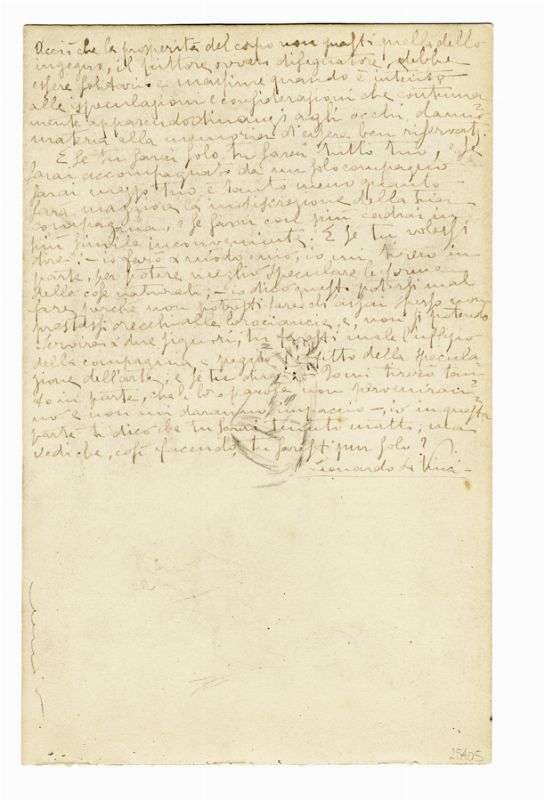 Acciò che la prosperità del corpo non guasti quella dello
ingegno, il pittore ovvero disegnatore, debbe
essere solitario e massime quando è intento
alle speculazioni e considerazioni che continua
mente apparendo dinanzi agli occhi, danno
materia alla memoria d'essere ben riservati.
E se tu sarai solo, tu sarai tutto tuo, e se
sarai accompagnato da un solo compagno
sarai mezzo tuo e tanto meno quanto
sarà maggiore la indiscrezione della sua
compagnia, e se sarai con più cadrai in
più simile inconveniente; E se tu volessi
dire: — io farò a modo mio, io mi tirerò in
parte, per potere meglio speculare le forme
delle cose naturali; — io dico questo potersi mal
fare, perchè non potresti fare che assai spesso non
prestassi orecchi alle loro ciancie, e, non si potendo
servire a due signori, tu faresti male l'uffizio
della compagnia, e peggio l' della specula
zione dell'arte; e se tu dirai: Io mi tirerò tan
to in parte, che le loro parole non perveniran
no e non mi daranno impaccio —, io in questa
parte ti dico che tu sarai tenuto matto; ma
vedi be, così facendo, tu saresti pur solo?
Leonardo da Vinci —
25405